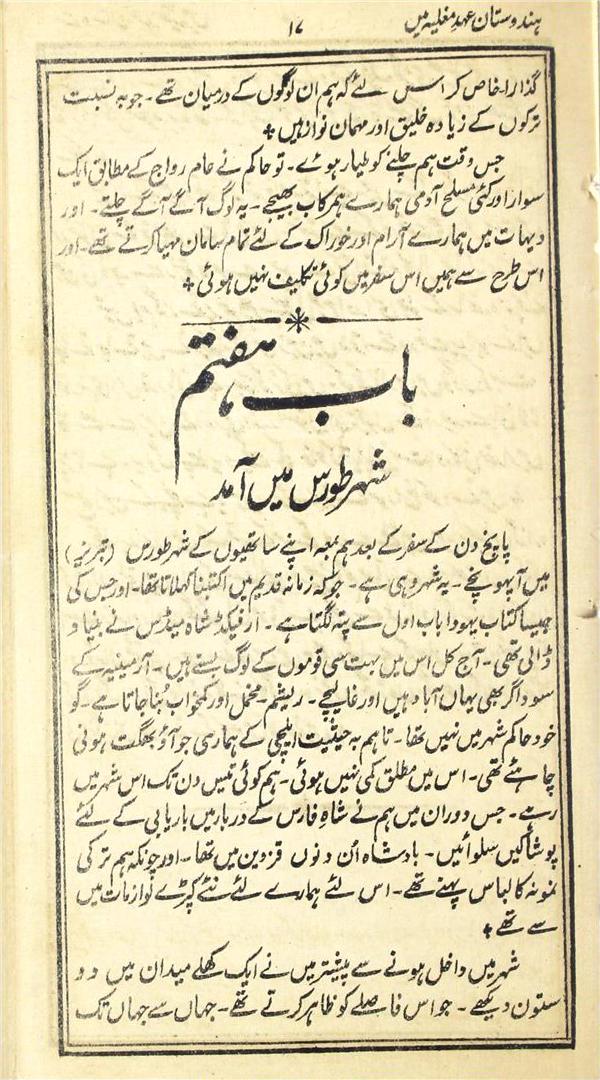 ہندوستان عہد مغلیہ میں
۱۷
گذارا۔ خاص کر اس لئے کہ ہم ان لوگوں کے درمیان تھے۔ جو بہ نسبت
ترکوں کے زیادہ خلیق اور مہمان نواز ہیں ٭
جس وقت ہم چلنے کو طیار ہوئے۔ تو حاکم نے عام رواج کے مطابق ایک
سوار اور کئی مسلح آدمی ہمارے ہمرکاب بھیجے۔ یہ لوگ آگے آگے چلتے۔ اور
دیہات میں ہمارے آرام اور خوراک کے لئے تمام سامان مہیا کرتے تھے۔ اور
اس طرح سے ہمیں اس سفر میں کوئی تکلیف نہیں ہوئی ٭
باب ہفتم
شہر طورس میں آمد
پانچ دن کے سفر کے بعد ہم بمعہ اپنے ساتھیوں کے شہر طورس (تبریز)
میں آپہونچے۔ یہ شہر وہی ہے۔ جو کہ زمانہ قدیم میں اکتبنا کہلاتا تھا۔ اور جس کی
جیسا کتاب یہودا باب اول سے پتہ لگتا ہے۔ ارفیکڈ شاہ میڈس نے بنیاد
ڈالی تھی۔ آج کل اس میں بہت سی قوموں کے لوگ بستے ہیں۔ آرمینیہ کے
سوداگر بھی یہاں آباد ہیں اور غالیچے۔ ریشم۔ مخمل اور کمخواب بُنا جاتا ہے۔ گو
خود حاکم شہر میں نہیں تھا۔ تاہم بہ حیثیت ایلچی کے ہماری جو آؤ بھگت ہونی
چاہئے تھی۔ اس میں مطلق کمی نہیں ہوئی۔ ہم کوئی تیس دن تک اس شہر میں
رہے۔ جس دوران میں ہم نے شاہِ فارس کے دربار میں باریابی کے لئے
پوشاکیں سلوائیں۔ بادشاہ اُن دنوں قزوین میں تھا۔ اور چونکہ ہم ترکی
نمونہ کا لباس پہنے تھے۔ اس لئے ہمارے لئے نئے کپڑے لوازمات میں
سے تھے ٭
شہر میں داخل ہونے سے پیشتر میں نے ایک کھلے میدان میں دو
ستون دیکھے۔ جو اس فاصلے کو ظاہر کرتے تھے۔ جہاں سے جہاں تک